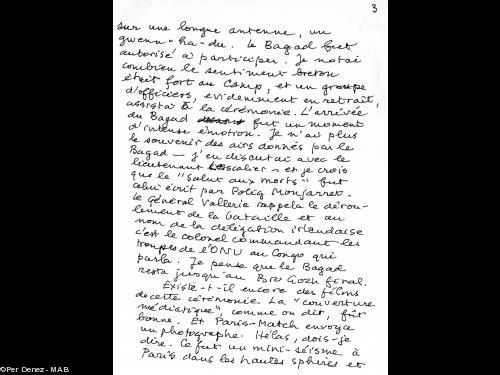 3
sur une longue antenne, un
gwenn-ha-du. Le Bagad fut
autorisé à participer. Je notai
combien le sentiment breton
était fort au Camp, et un groupe
d'officiers, évidemment en retrait,
assista à la cérémonie. L'arrivée
du Bagad fut un moment
d'intense émotion. Je n'ai plus
le souvenir des airs donnés par le
Bagad — j'en discutai avec le
lieutenant Lescalier - et je crois
que le "Salut aux morts" fut
celui écrit par Polig Monjarret.
Le général Vallerie rappela le dérou-
lement de la bataille et au
nom de la délégation irlandaise
c'est le colonel commandant les
troupes de l'ONU au Congo qui
parla. Je pense que le Bagad
resta jusqu'au Bro Gozh final.
Existe-t-il encore des films
de cette cérémonie. La "couverture
médiatique", comme on dit, fut
bonne. Et Paris-Match envoya
un photographe. Hélas, dois-je
dire. Ce fut un mini-séisme à
Paris dans les hautes sphères et
©Per Denez - MAB